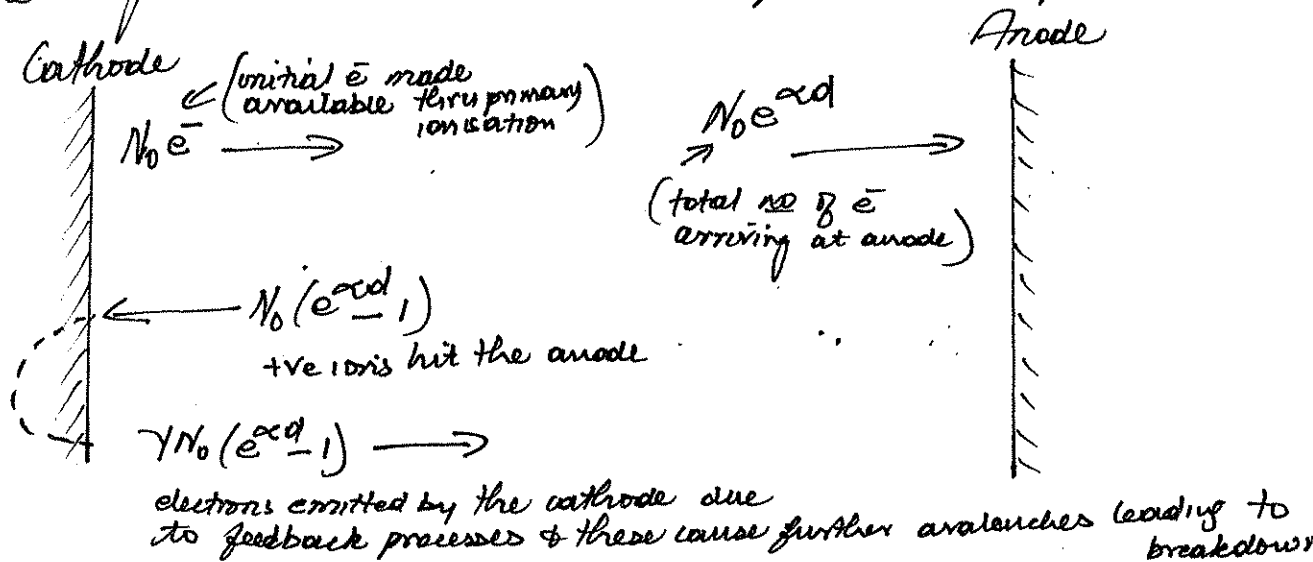 Cathode
Anode
(initial ē made
available thru primary
ionisation)
N₀e⁻
N₀e^αd
(total no of ē
arriving at anode)
N₀(e^αd - 1)
+ve ions hit the anode
γN₀(e^αd - 1)
electrons emitted by the cathode due
to feedback processes & these cause further avalanches leading to
breakdown